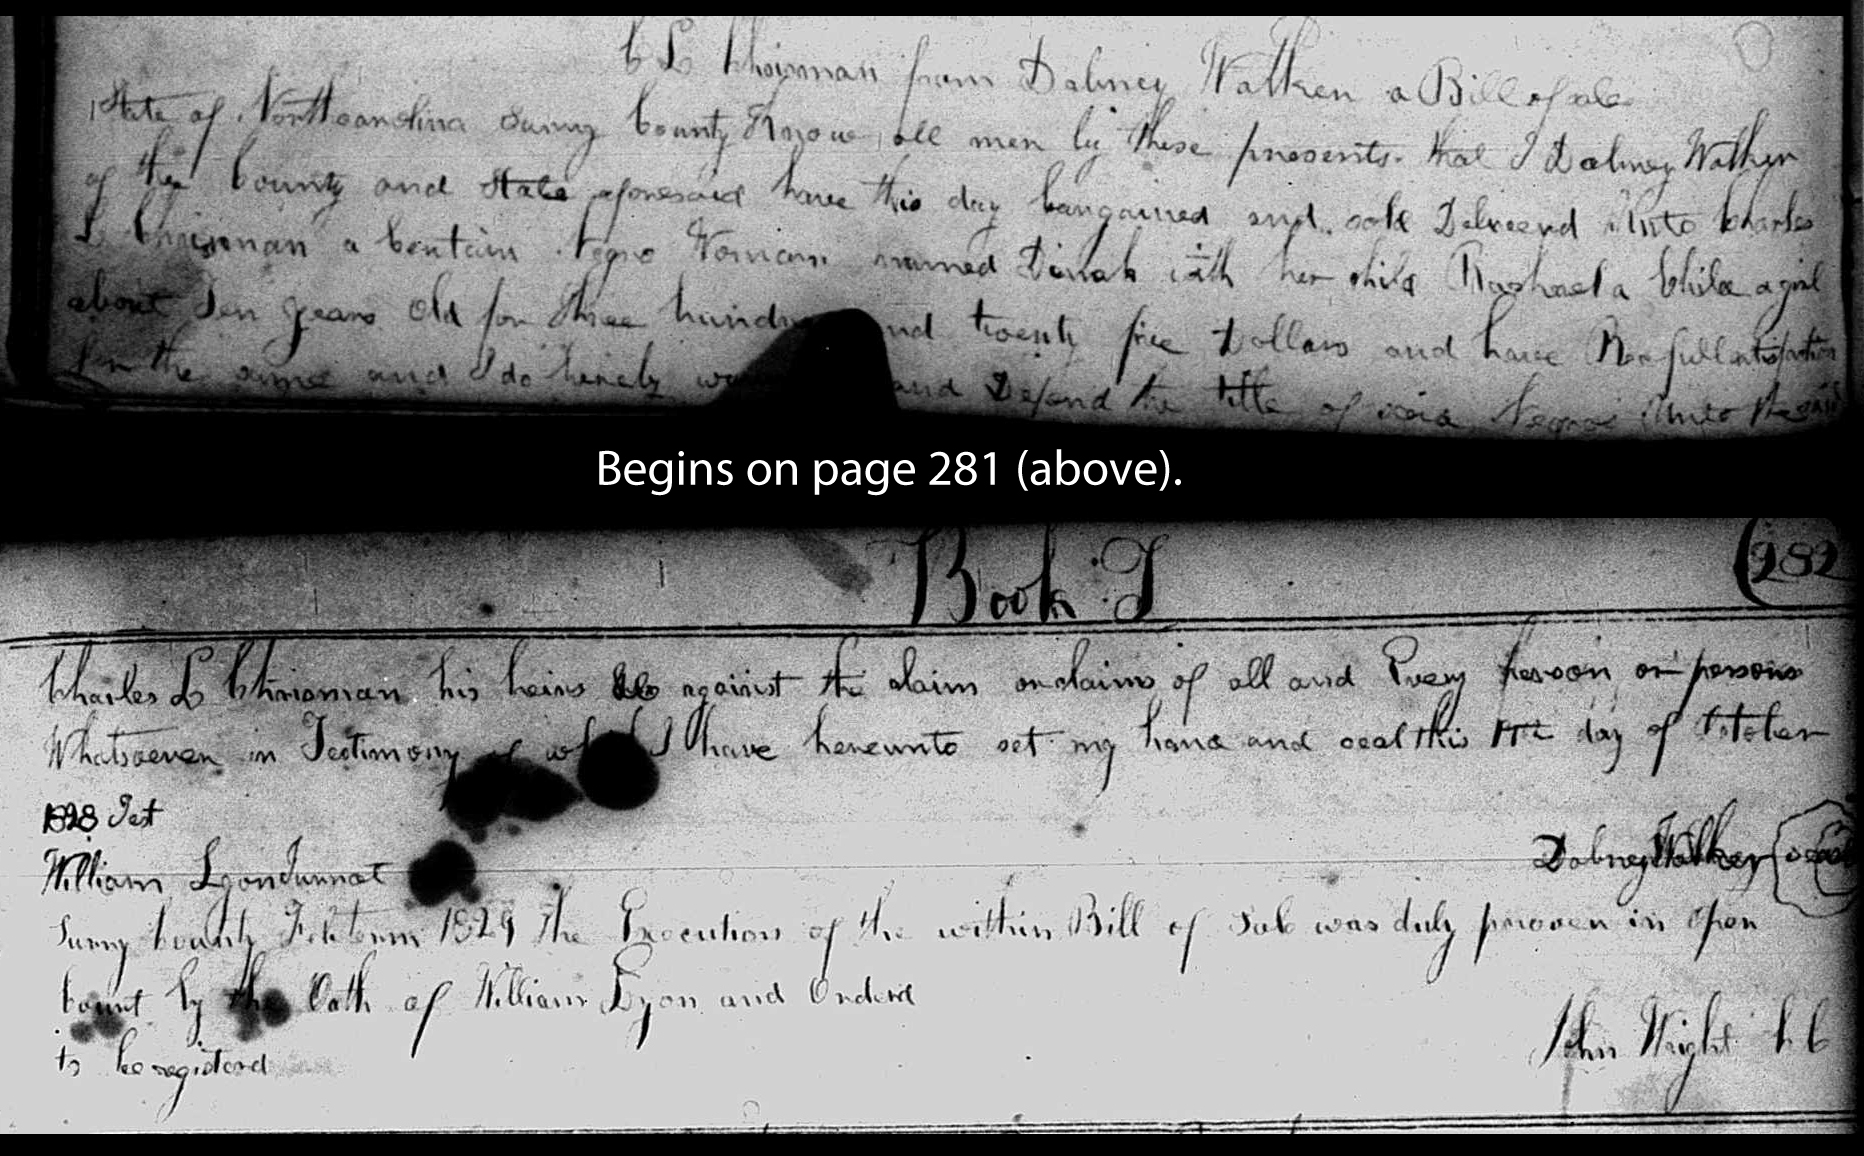 C L Chrisman from Dabney Walker a Bill of sale
State of Northcarolina Surry County Know all men by these presents that I Dabney Walker
of the County and State aforesaid have this day bargained and sold Delivered Unto Charles
L Chrisman a Certain Negro Woman named Dinah with her child Rachael a Child a girl
about Ten years Old for three hundred and twenty five Dollars and have Rec full satisfaction
for the same and I do hereby and Defend the title of said Negroes Unto the said
Begins on page 281 (above).
Book T
(282
Charles L Chrisman his heirs against the claim or claims of all and Every person or persons
Whatsoever in Testimony of I have hereunto set my hand and seal this day of October
1828 Test
William Lyon Jurrat
Dabney Walker (seal
Surry County Feb term 1829 the Execution of the within Bill of Sale was duly proven in Open
Court by the Oath of William Lyon and Orderd
to be registerd
John Wright